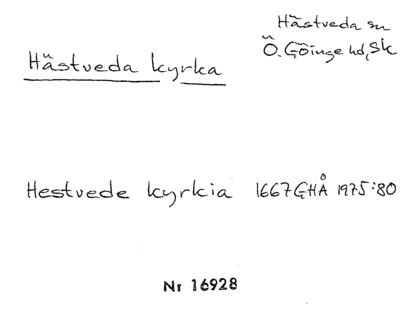 Hästveda sn
Ö. Göinge hd, Sk
Hästveda kyrka
Hestvede kyrkia 1667 GHÅ 1975:80
Nr 16928